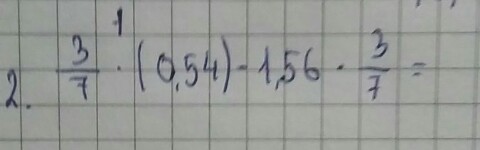 1
2. 3/7 · (0,54) - 1,56 · 3/7 =